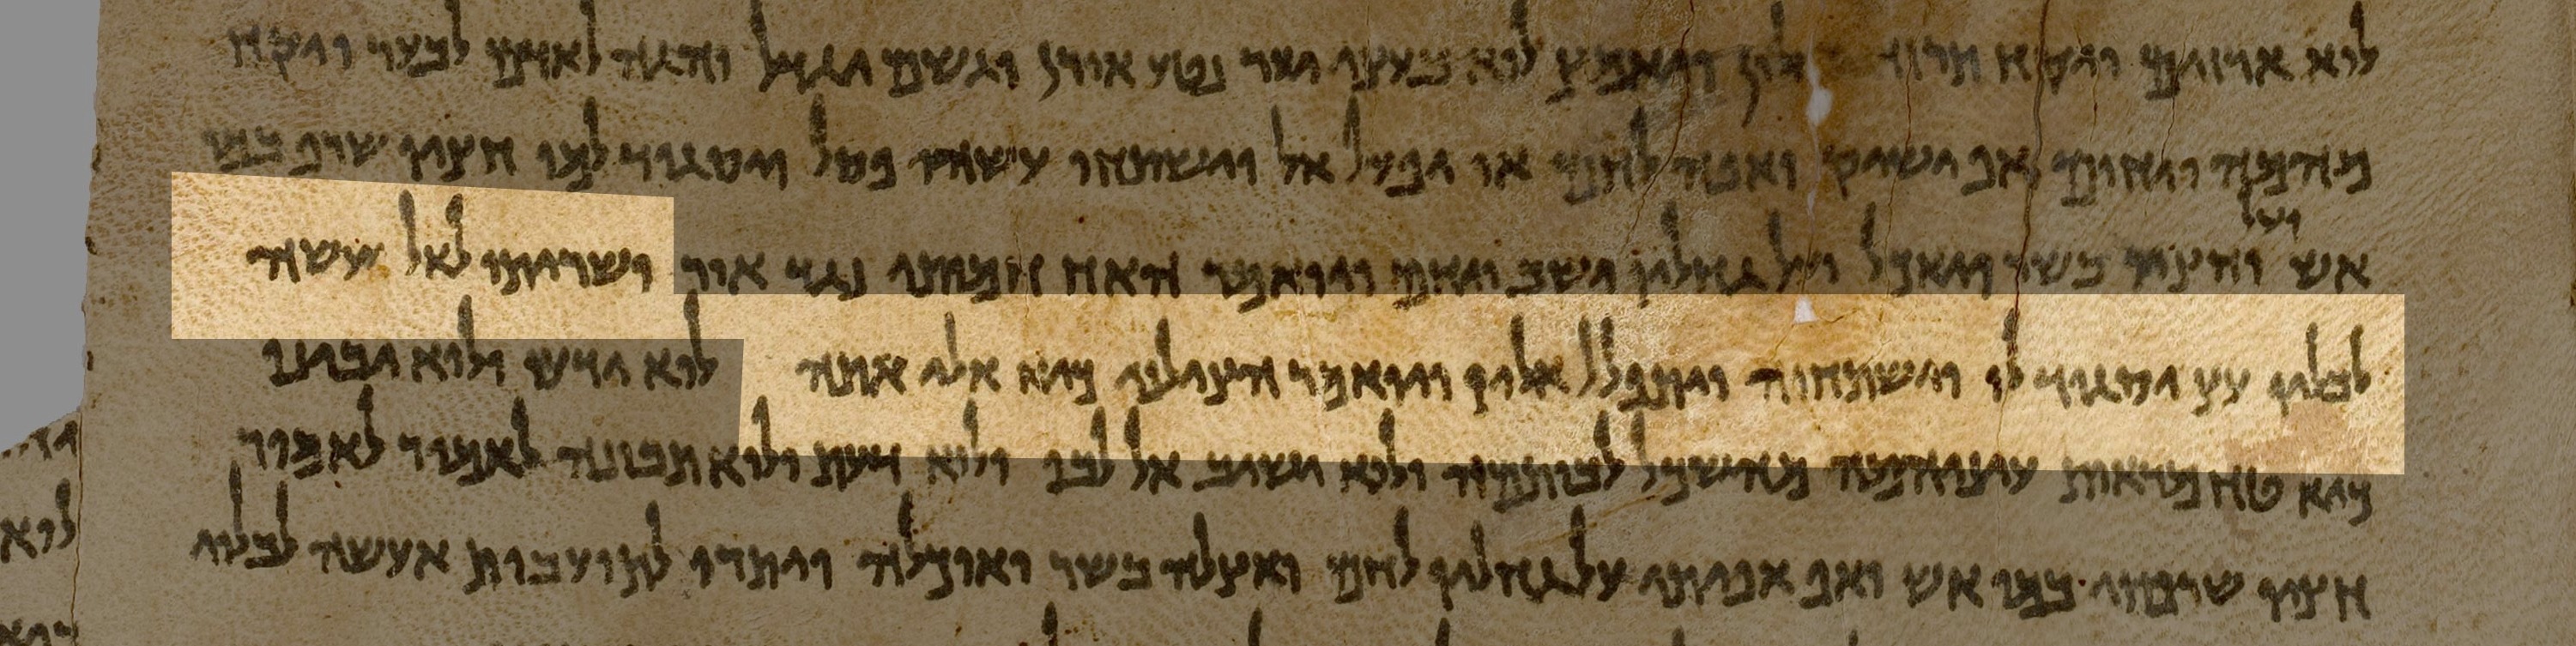 לוא ארזותים ויקח תרזה ואלון ויאמץ לוא בעצי יער נטע אורן וגשם יגדל והיה לאדם לבער ויקח
מהמה ויחום אף ישיק ואפה לחם או יפעל אל וישתחוו עשהו פסל ויסגוד למו חציו שרף במו
ועל
אש וחציו בשר ויאכל ועל גחליו ישב ויחם ויואמר האח חמותי נגד אור ושריתו לאל עשה
לבליו עץ יסגוד לו וישתחוה ויתפלל אליו ויואמר הצילני כיא אלי אתה לוא ידעו ולוא יבינו
כיא טח מראות עיניהמה מהשכל לבותמה ולוא ישוב אל לבו ולוא דעת ולוא תבונה לאמור לאמור
חציו שרפתי במו אש ואף אפיתי על גחליו לחם ואצלה בשר ואוכלה ויתרו לתועבות אעשה לבלוי